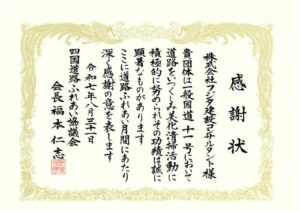 感謝状
株式会社フジタ建設コンサルタント様
貴団体は一般国道十一号において
道路をいつくしみ美化清掃活動に
積極的に努められその功績は誠に
顕著なものがあります
ここに道路ふれあい月間にあたり
深く感謝の意を表します
令和七年八月三十一日
四国道路ふれあい協議会
会長福本仁志